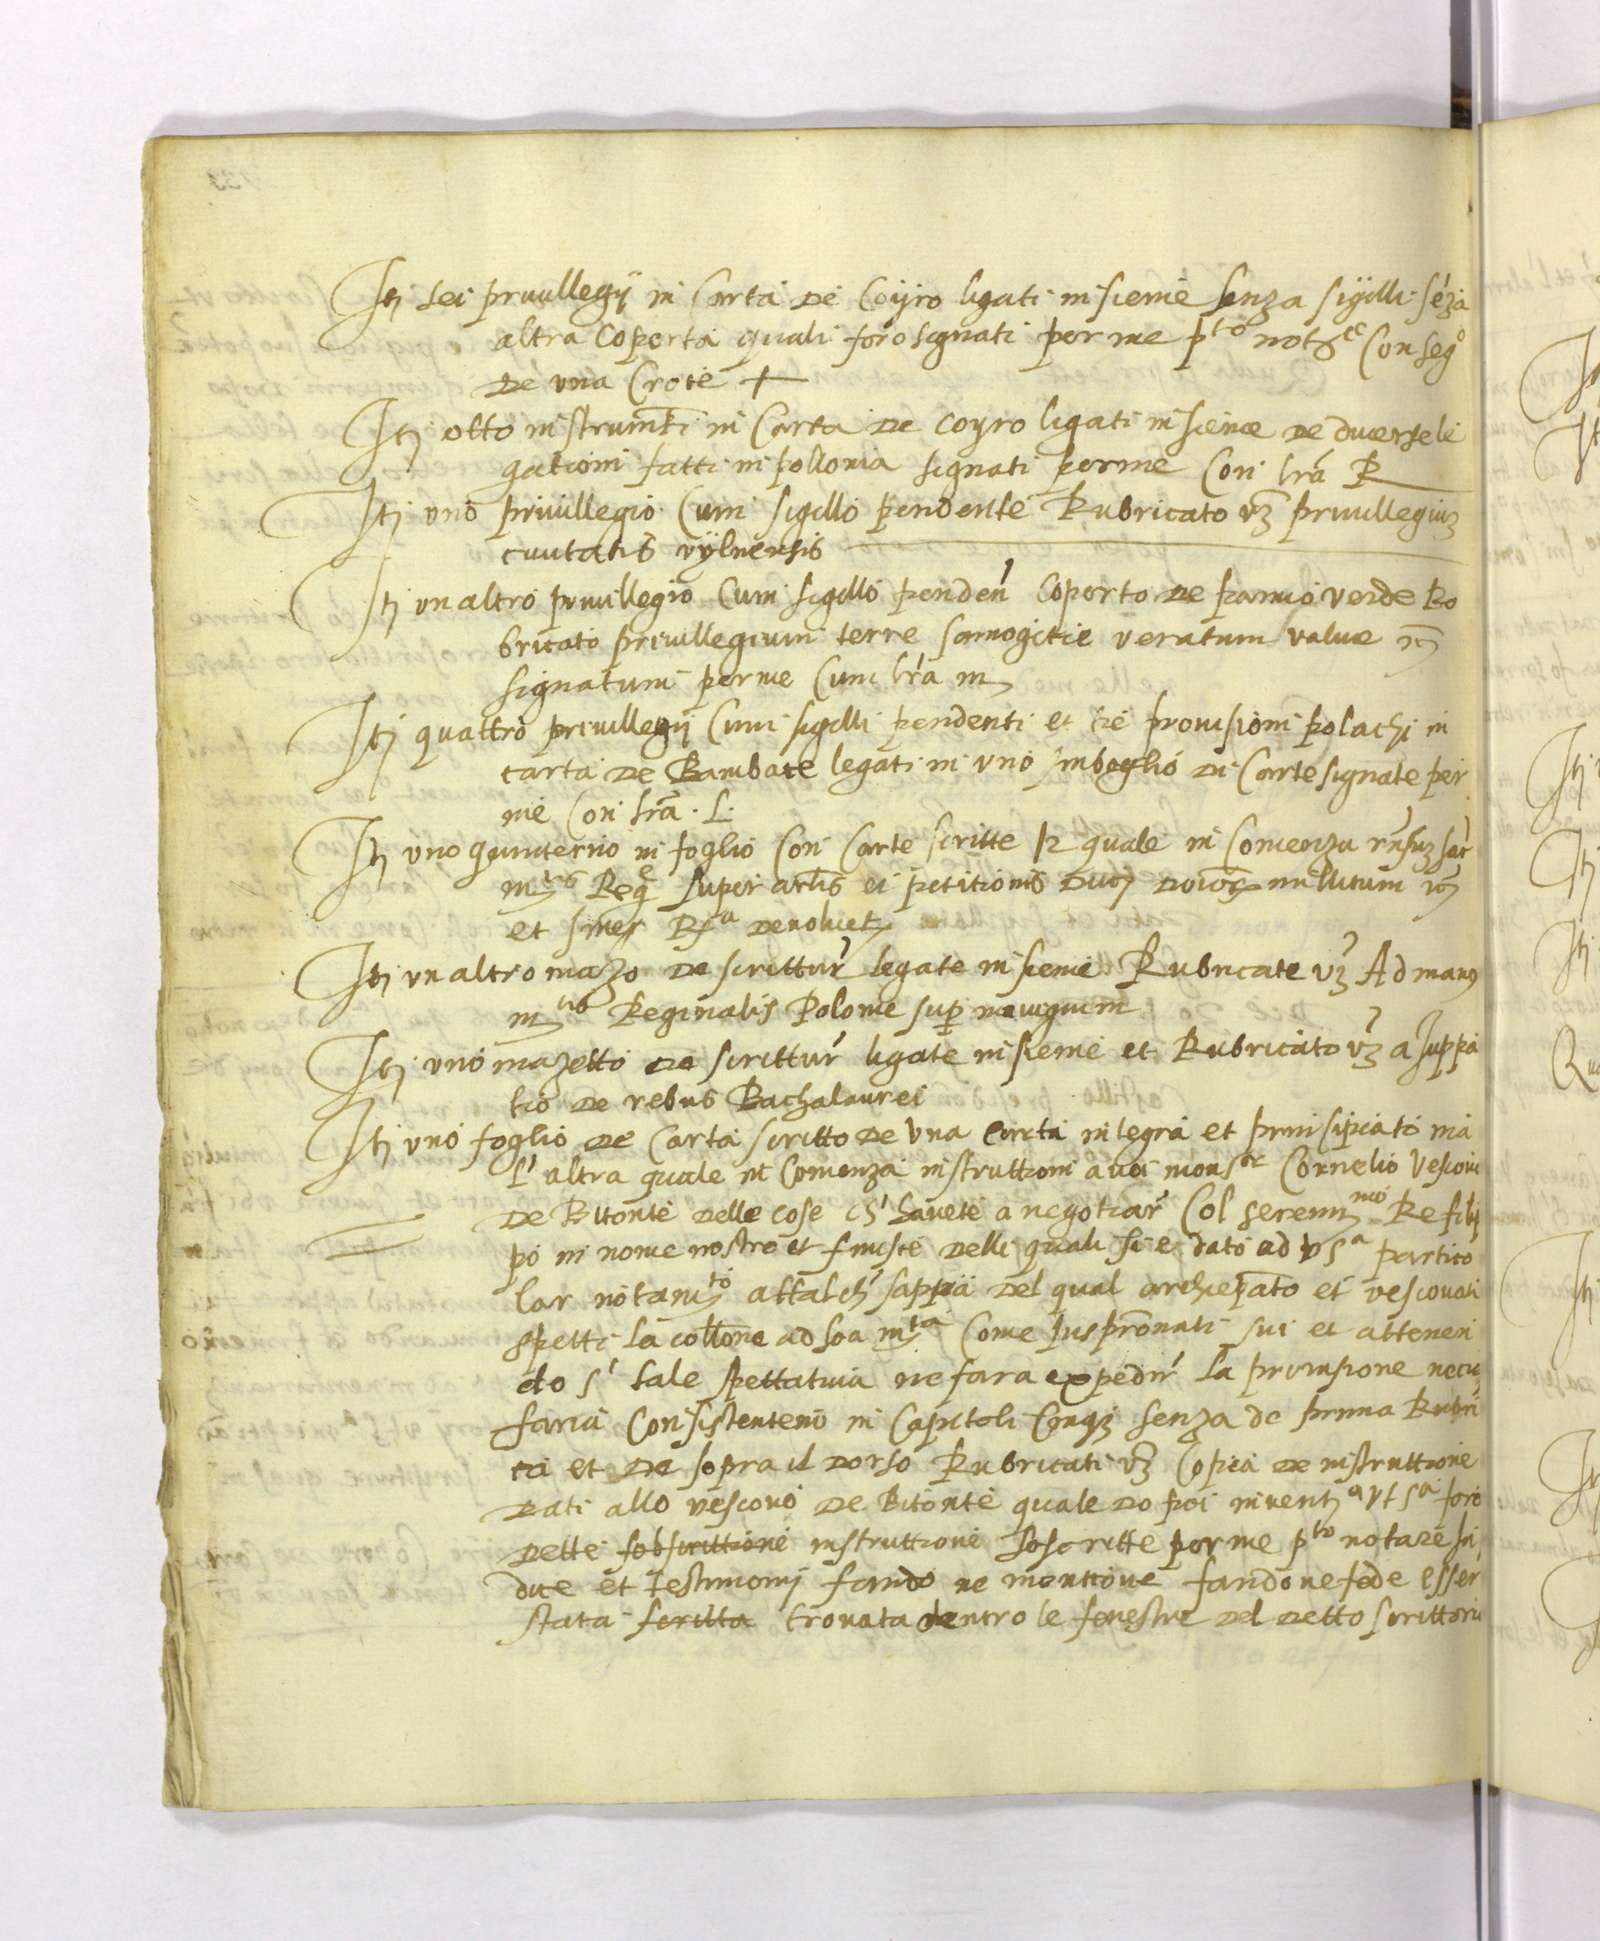 Itj sei privillegij in Carta de Coyro ligati insieme senza sigilli séza
altra coperta quali foro signati per me p^to not^re Con seg^o
de una Croce +
Itj otto instrumēti in Carta de coyro ligati insieme de diverse le
gationi fatti in pollonia signati per me Con lrā R
Itj uno privillegio Cum sigillo pendente Rubricato vz privillegium
civitatis vylnensis
Itj un altro privillegio Cum sigillo penden coperto de panno verde Ro
bricato privillegium terre samogitie veratum value
signatum per me Cum lrā m
Itj quattro privillegij Cum sigilli pendenti et tre provisioni polachi in
carta de Bambace legati in uno imboglio di Carte signate per
me Con lrā . L.
Itj uno quinterno in foglio Con Carte scritte 12 quale in Comenza
m^tis Reg^e super artis et petitionis
et
Itj un altro mazo de scrittur legate insieme Rubricate vz Ad
m^tis Reginalis Polonie sup
Itj uno mazetto de scrittur ligate insieme et Rubricato vz a suppa
tio de rebus Bachalaurei
Itj uno foglio de Carta scritto de una carta integra et prinsipiato ma
l'altra quale in Comenza instruttioni a voi mons^or Cornelio Vescovo
de Bitonte delle cose ch' havete a negotiar Col sereniss^mo Re fili
po in nome nostro et finisce delli quali si e dato ad v s^a partico
lar notam^to attalch' sappia del qual archiepāto et vescovati
spetti la collōne ad soa m^ta Come juspronati sui et atteneri
do s' tale spettativa ne fara expedir la provisione neces
saria Consistenteno in Capitoli Cinq senza de prima Rubri
ca et de sopra il dorso Rubricati vz Copia de instruttione
dati allo vescovo de Bitonte quale do poi foro
dette sobscrittione instruttione soscritte per me p^to notare
dice et testimonij fando ne mentione fandone fede esser
stata scritta trovata dentro le fenestre del detto scrittorio